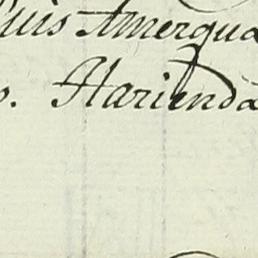 Luis Amerqua
o. Harienda